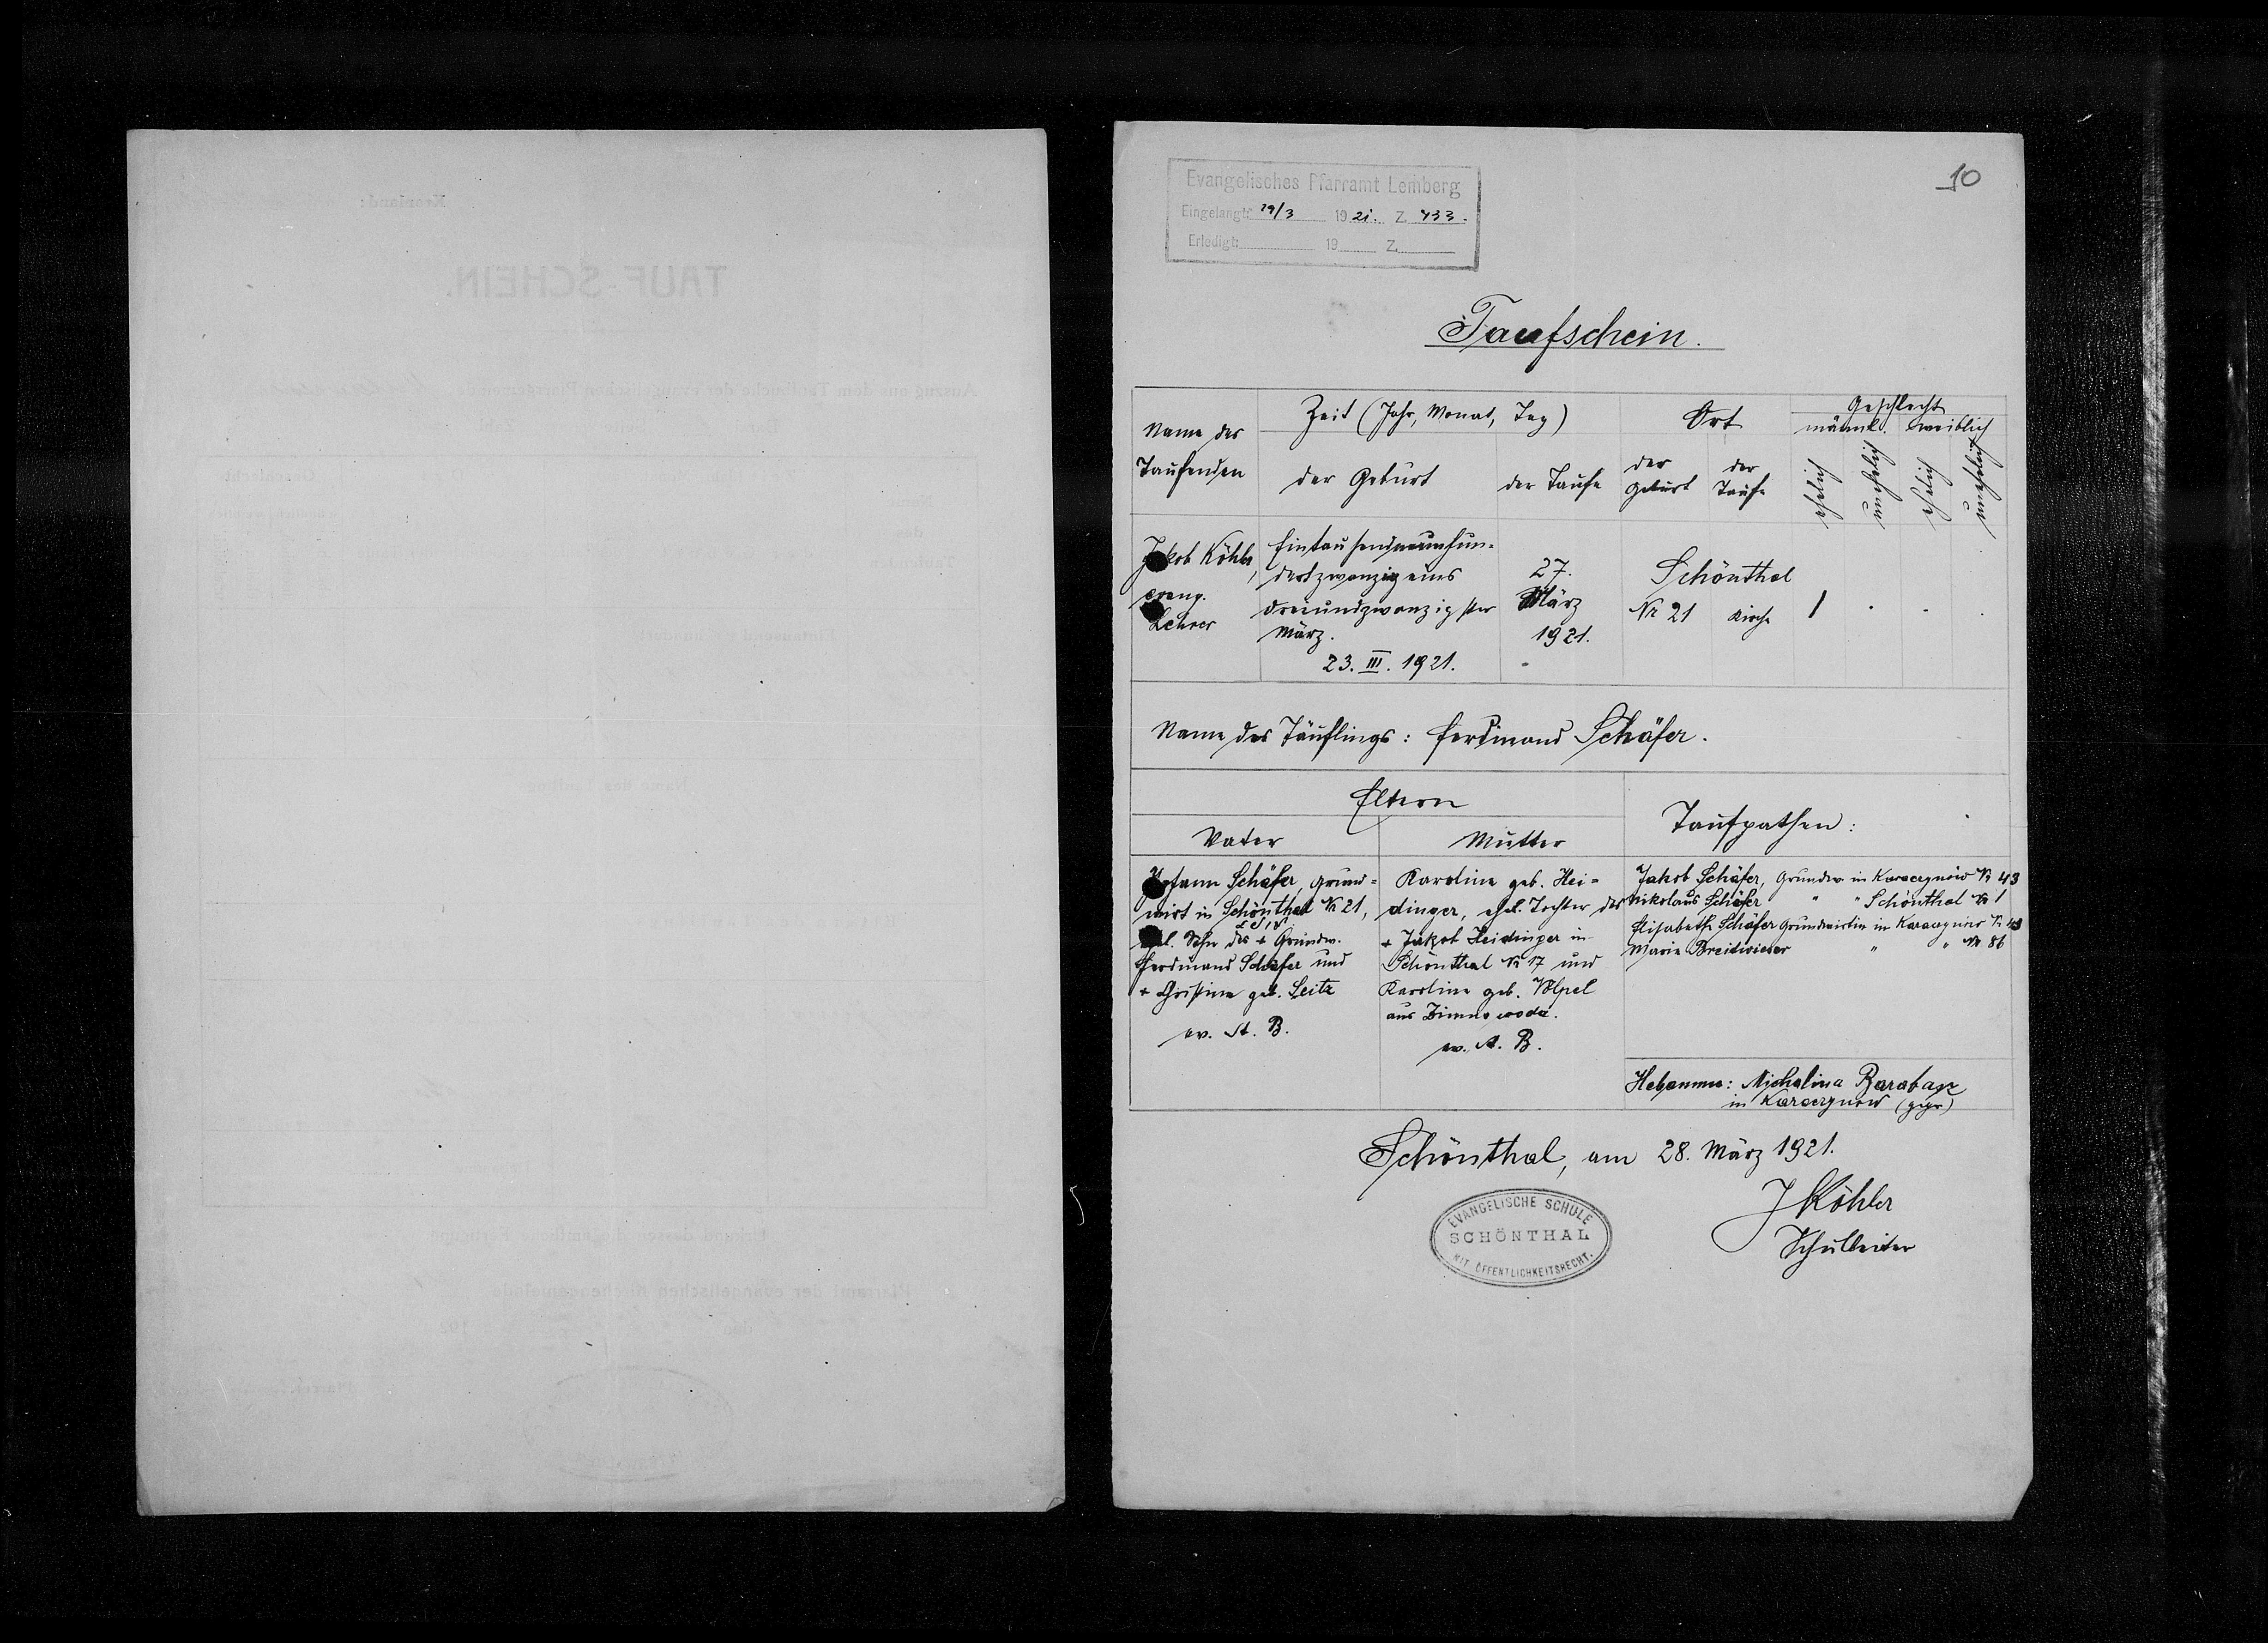 10
Evangelisches Pfarramt Lemberg
Eingelangt: 29/3 1921. Z. 433.
Erledigt: 19 Z.
Taufschein.
Name des Taufenden
Zeit (Jahr, Monat, Tag)
der Geburt
der Taufe
Ort
der Geburt
der Taufe
Geschlecht
männl. weiblich
ehelich
unehelich
ehelich
unehelich
Jakob Köhler,
evang.
Lehrer
Eintausendneunhun-
dertzwanzigeins
dreiundzwanzigster
März.
23. III. 1921.
27.
März
1921.
Schönthal
Nr 21 Kirche
1
Name des Täuflings: Ferdinand Schäfer.
Eltern
Vater
Mutter
Taufpathen:
Johann Schäfer, Grund-
wirt in Schönthal Nr 21,
ehel. Sohn des + Grundw.
Ferdinand Schäfer und
+ Christine geb. Seitz
ev. A. B.
Karoline geb. Hei-
dinger, ehel. Tochter des
+ Jakob Heidinger in
Schönthal Nr 17 und
Karoline geb. Völpel
aus Zimnowoda.
ev. A. B.
Jakob Schäfer, Grundw. in Karaczynów Nr 43
Nikolaus Schäfer " " Schönthal Nr 1
Elisabeth Schäfer Grundwirtin in Karaczynów Nr 43
Maria Breitwieser " " Nr 86
Hebamme: Michalina Barabasz
in Karaczynów (gepr)
Schönthal, am 28. März 1921.
J Köhler
Schulleiter
EVANGELISCHE SCHULE
SCHÖNTHAL
MIT ÖFFENTLICHKEITSRECHT.
Kronland:
TAUF-SCHEIN.